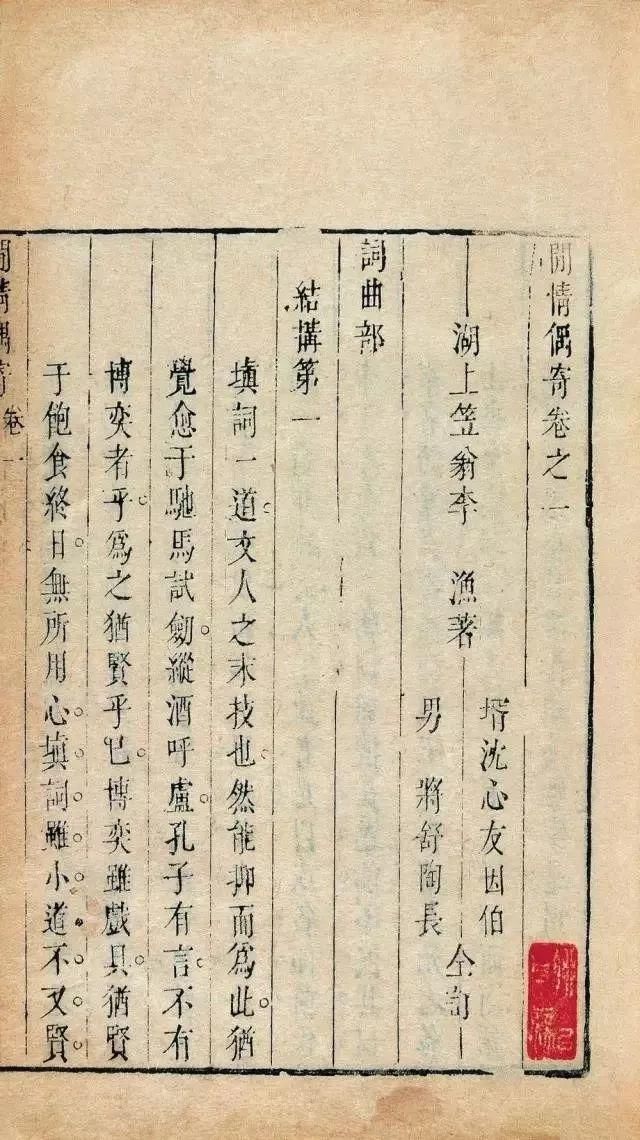 閒情偶寄卷之一
湖上笠翁李 漁著
壻沈心友因伯
男 將舒陶長
仝訂
詞曲部
結搆第一
填詞一道。文人之末技也。然能抑而爲此。猶
覺愈于馳馬試劒。縱酒呼盧。孔子有言。不有
博奕者乎。爲之猶賢乎已。博奕雖戲具。猶賢
于飽食終日。無所用心。填詞雖小道。不又賢
閒情偶寄 卷一